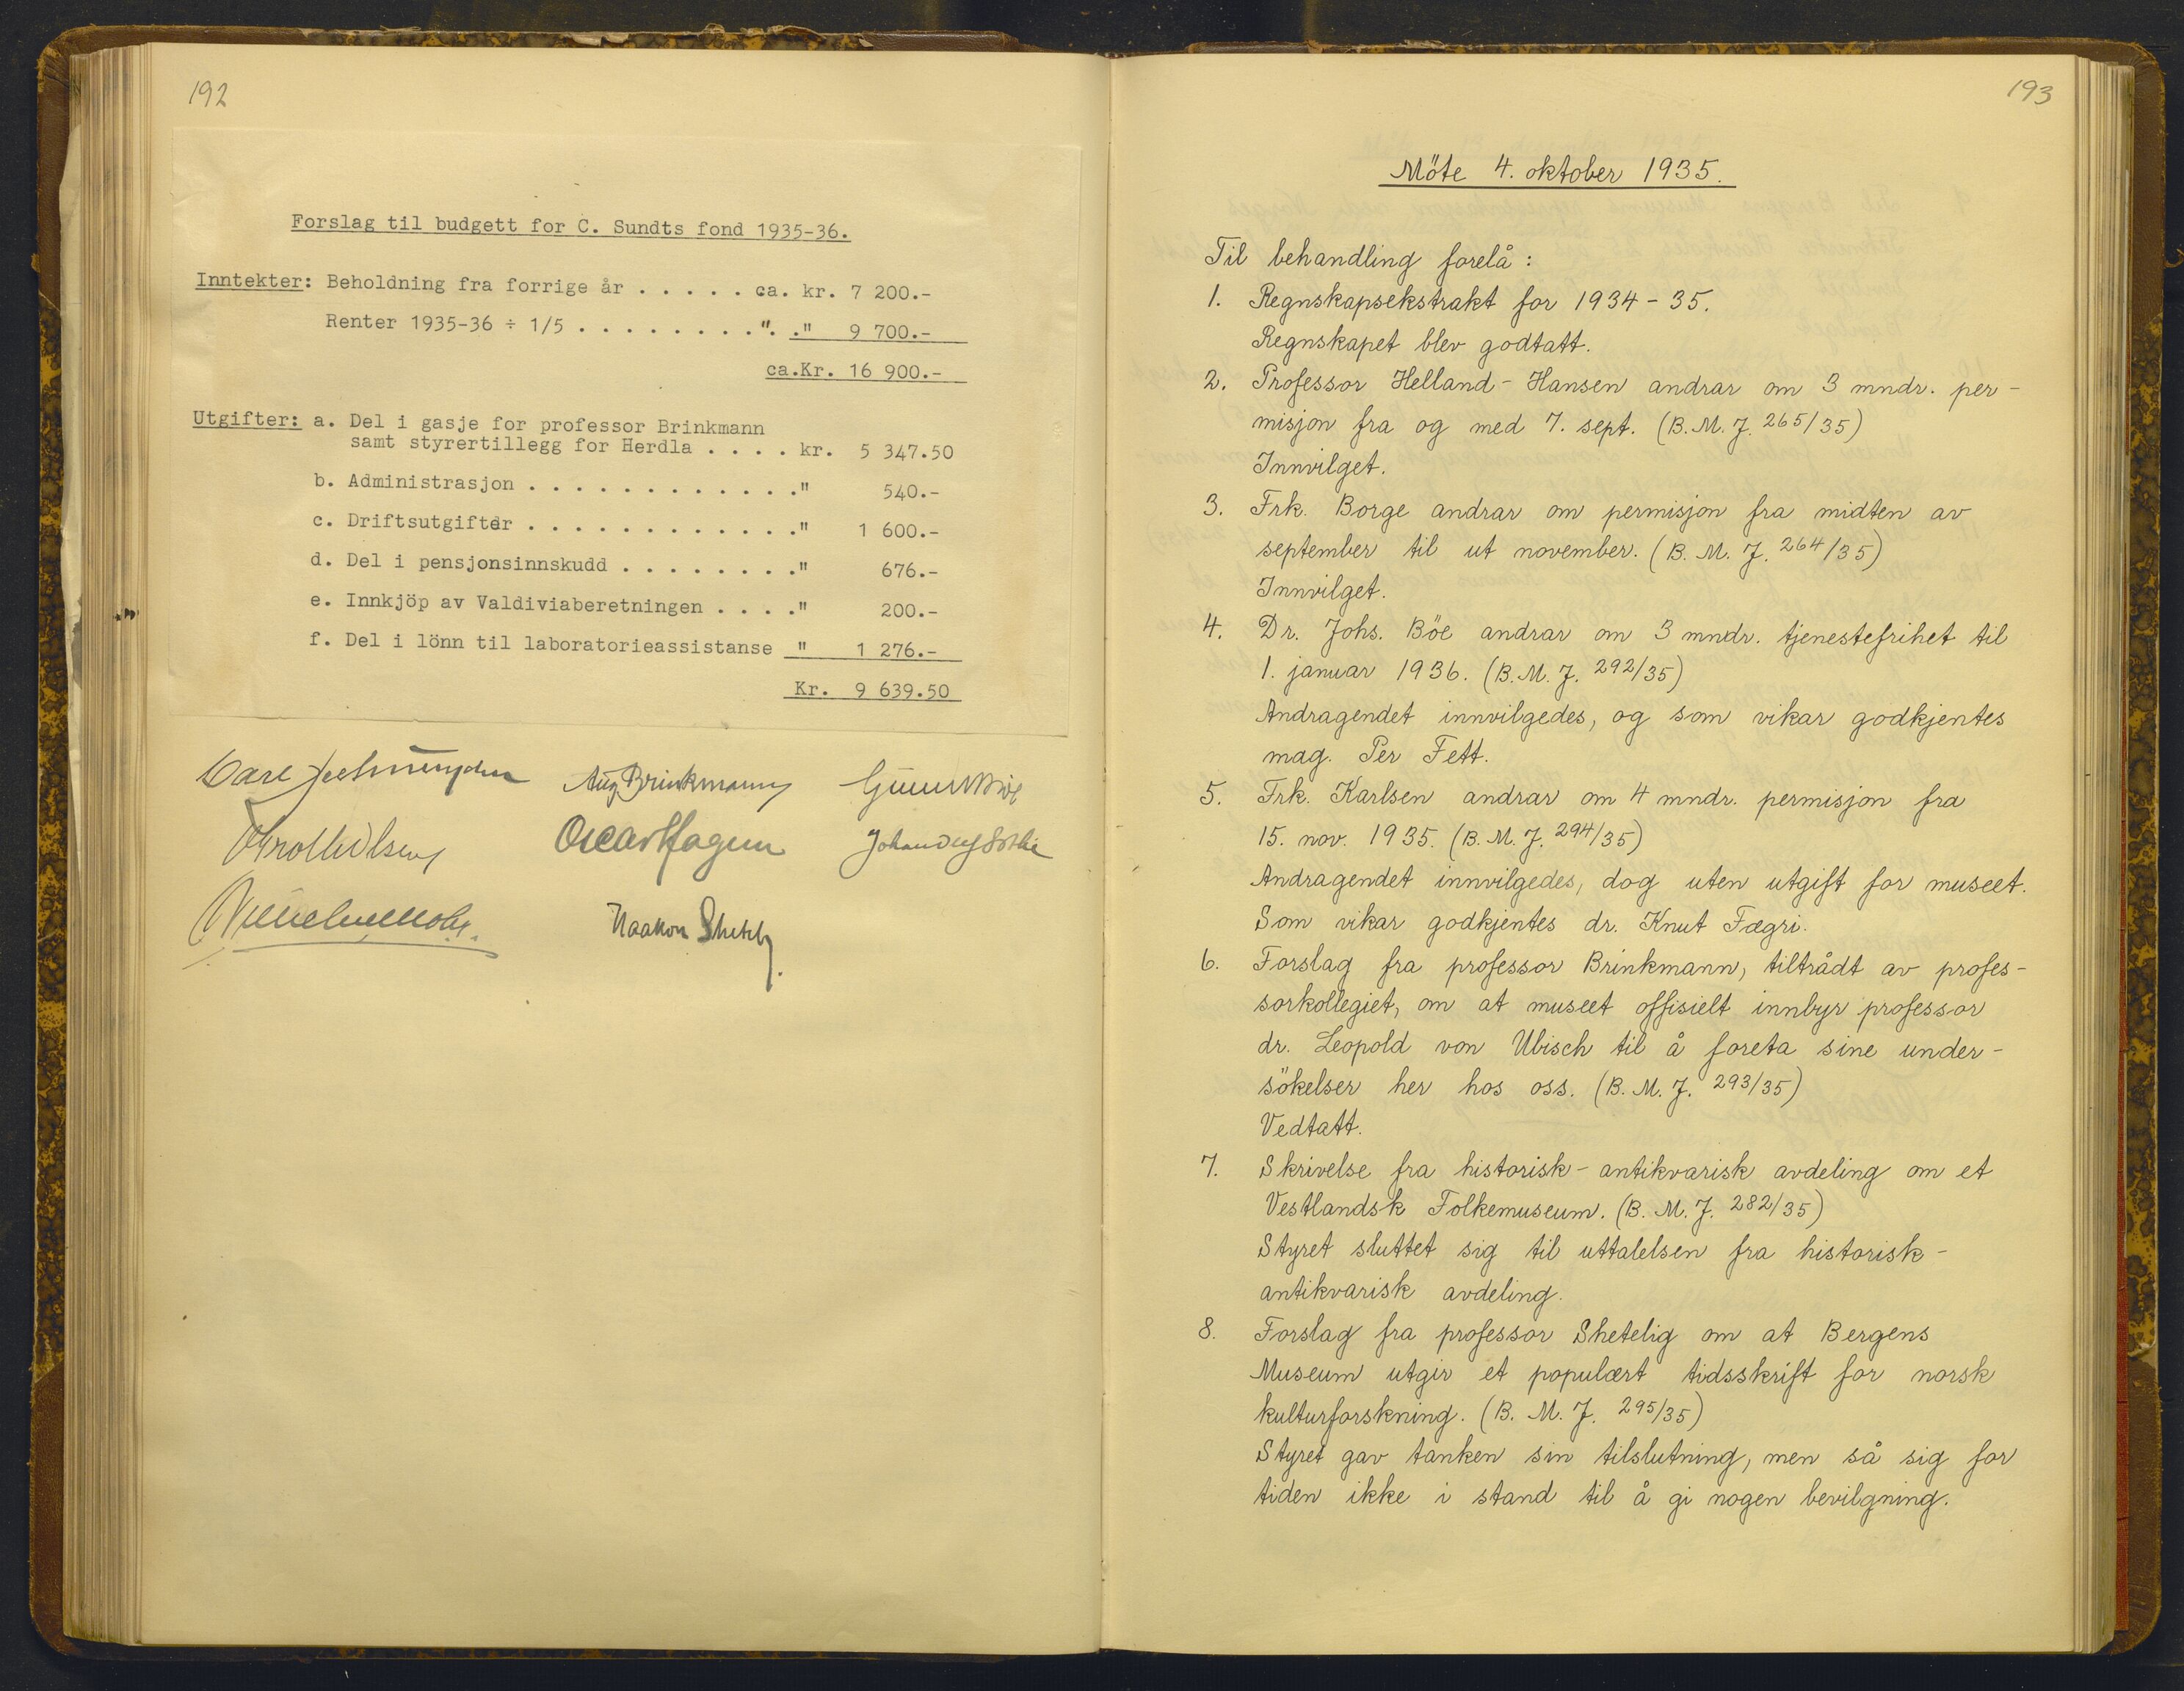 192
Forslag til budgett for C. Sundts fond 1935-36.
Inntekter: Beholdning fra forrige år . . . . . ca. kr. 7 200.-
Renter 1935-36 ÷ 1/5 . . . . . . . . ". ." 9 700.-
ca.Kr. 16 900.-
Utgifter: a. Del i gasje for professor Brinkmann
samt styrertillegg for Herdla . . . . kr. 5 347.50
b. Administrasjon . . . . . . . . . . . . ." 540.-
c. Driftsutgifter . . . . . . . . . . . . ." 1 600.-
d. Del i pensjonsinnskudd . . . . . . . ." 676.-
e. Innkjöp av Valdiviaberetningen . . . ." 200.-
f. Del i lönn til laboratorieassistanse " 1 276.-
Kr. 9 639.50
Aug Brinkmann
Oscar Hagem
Haakon Shetelig
193
Möte 4. oktober 1935.
Til behandling forelå :
1. Regnskapsekstrakt for 1934 - 35.
Regnskapet blev godtatt.
2. Professor Helland - Hansen andrar om 3 mndr. per-
misjon fra og med 7. sept. (B. M. J. 265/35)
Innvilget.
3. Frk. Borge andrar om permisjon fra midten av
september til ut november. (B. M. J. 264/35)
Innvilget.
4. Dr. Johs. Böe andrar om 3 mndr. tjenestefrihet til
1. januar 1936. (B. M. J. 292/35)
Andragendet innvilgedes, og som vikar godkjentes
mag. Per Fett.
5. Frk. Karlsen andrar om 4 mndr. permisjon fra
15. nov. 1935. (B. M. J. 294/35)
Andragendet innvilgedes, dog uten utgift for museet.
Som vikar godkjentes dr. Knut Fægri.
6. Forslag fra professor Brinkmann, tiltrådt av profes-
sorkollegiet, om at museet offisielt innbyr professor
dr. Leopold von Ubisch til å foreta sine under-
sökelser her hos oss. (B. M. J. 293/35)
Vedtatt.
7. Skrivelse fra historisk - antikvarisk avdeling om et
Vestlandsk Folkemuseum. (B. M. J. 282/35)
Styret sluttet sig til uttalelsen fra historisk -
antikvarisk avdeling.
8. Forslag fra professor Shetelig om at Bergens
Museum utgir et populært tidsskrift for norsk
kulturforskning. (B. M. J. 295/35)
Styret gav tanken sin tilslutning, men så sig for
tiden ikke i stand til å gi nogen bevilgning.